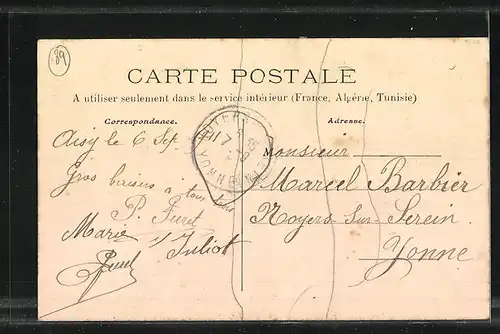 89
CARTE POSTALE
A utiliser seulement dans le service intérieur (France, Algérie, Tunisie)
Correspondance.
Adresse.
Aisy le 6 Sep.
Monsieur
Gros baisers à tous
Marcel Barbier
P. Puret
Noyers sur Serein
Marie Juliot
Yonne
Puret